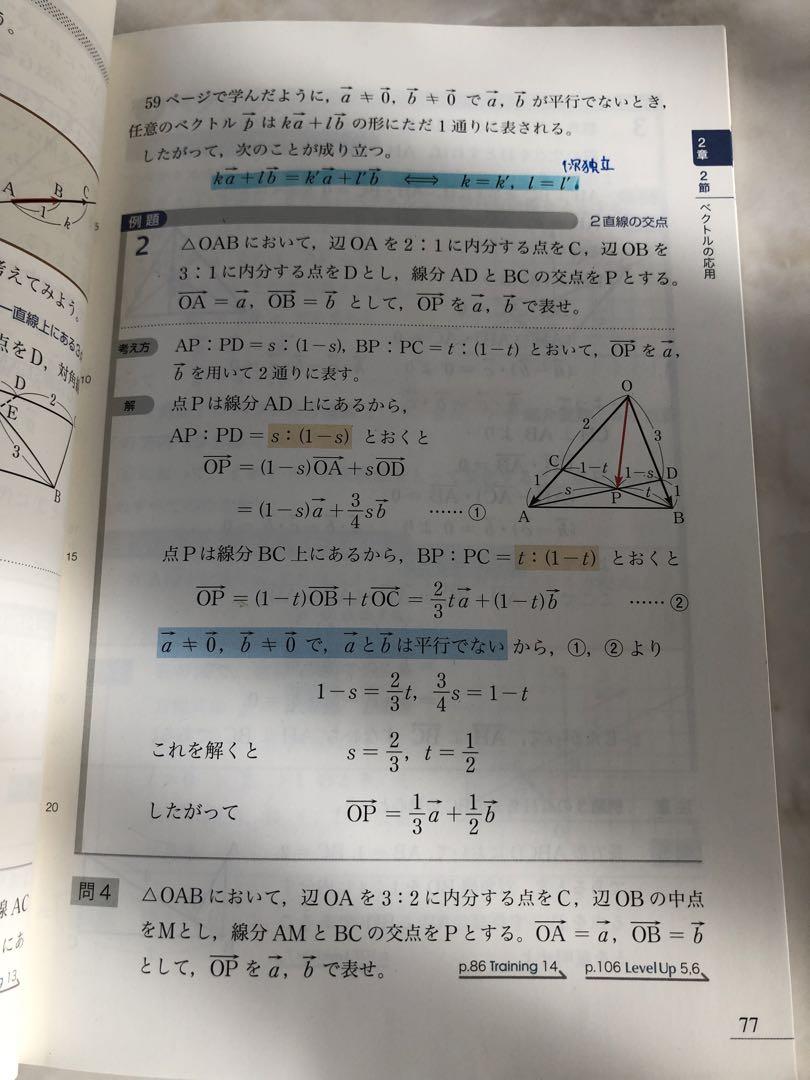 59ページで学んだように，a→ ≠ 0→，b→ ≠ 0→ で a→，b→ が平行でないとき，
任意のベクトル p→ は ka→＋lb→ の形にただ1通りに表される。
したがって，次のことが成り立つ。
1次独立
ka→＋lb→＝k′a→＋l′b→ ⟺ k＝k′，l＝l′
例題 2直線の交点
2 △OABにおいて，辺OAを2：1に内分する点をC，辺OBを
3：1に内分する点をDとし，線分ADとBCの交点をPとする。
OA→＝a→，OB→＝b→ として，OP→ を a→，b→ で表せ。
考え方 AP：PD＝s：(1－s)，BP：PC＝t：(1－t) とおいて，OP→ を a→，
b→ を用いて2通りに表す。
解 点Pは線分AD上にあるから，
AP：PD＝s：(1－s) とおくと
OP→＝(1－s)OA→＋sOD→
＝(1－s)a→＋3/4 sb→ ……①
O
2
3
C
1－t
1－s
D
1
s
P
t
1
A
B
点Pは線分BC上にあるから，BP：PC＝t：(1－t) とおくと
OP→＝(1－t)OB→＋tOC→＝2/3 ta→＋(1－t)b→ ……②
a→ ≠ 0→，b→ ≠ 0→ で，a→とb→は平行でない から，①，②より
1－s＝2/3 t，3/4 s＝1－t
これを解くと s＝2/3，t＝1/2
したがって OP→＝1/3 a→＋1/2 b→
問4 △OABにおいて，辺OAを3：2に内分する点をC，辺OBの中点
をMとし，線分AMとBCの交点をPとする。OA→＝a→，OB→＝b→
として，OP→ を a→，b→ で表せ。
p.86 Training 14 p.106 Level Up 5,6
77
2章
2節
ベクトルの応用
5
10
15
20
A
B
C
1
k
考えてみよう。
一直線上にある3
点をD，対角
D
2
E
3
B
線AC
にあ
13